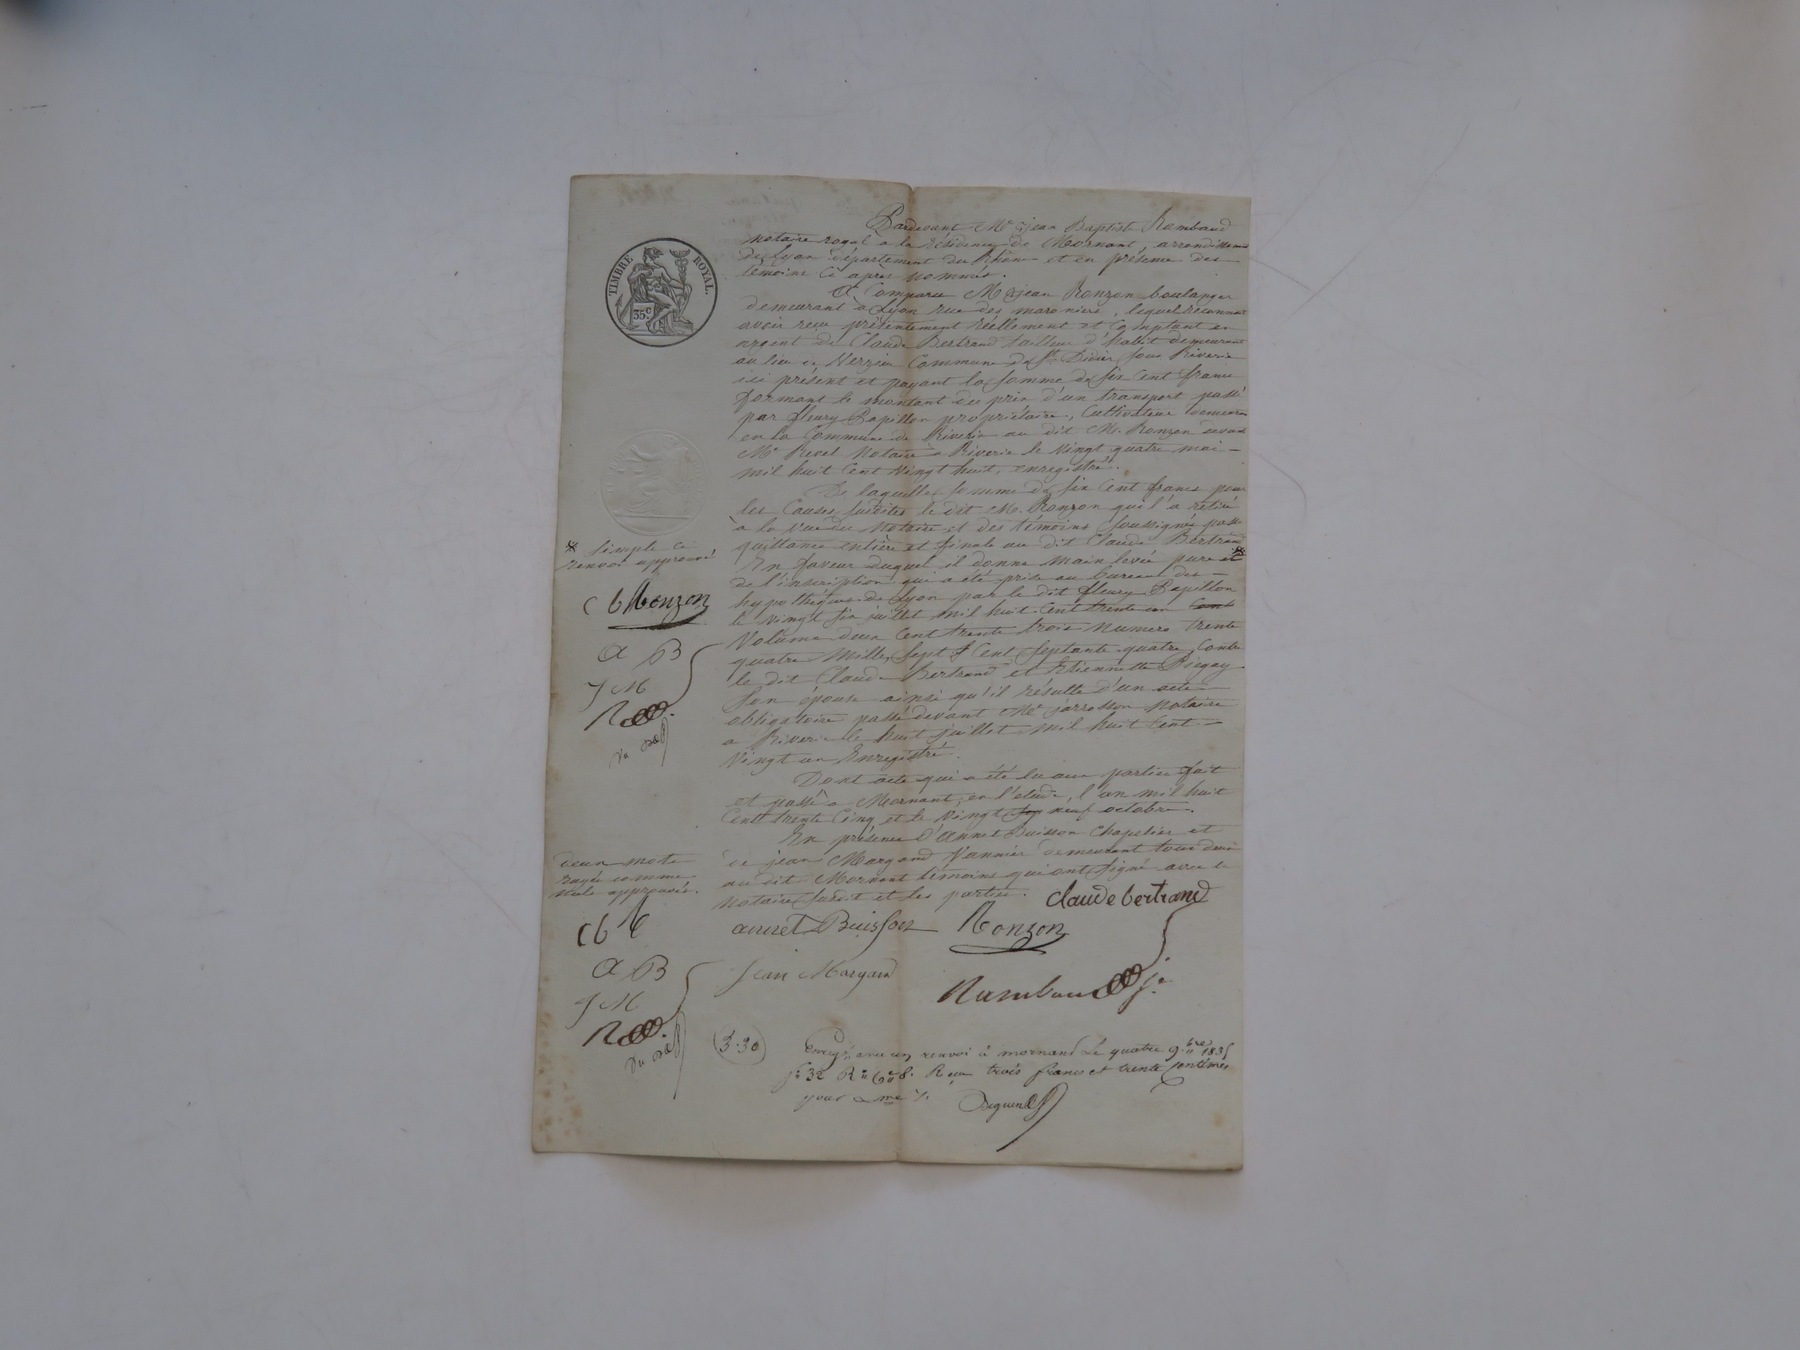 TIMBRE ROYAL.
35 c
Pardevant Me jean Baptiste Rambaud
notaire royal a la Résidence de Mornant, arrondissement
de Lyon département du Rhône et en présence des
temoins ci après nommés.
A Comparu M. jean Ronzon boulanger
demeurant à Lyon rue des maroniers, lequel reconnait
avoir reçu présentement réellement et Comptant en
argent de Claude Bertrand tailleur d'habit demeurant
au lieu de Verzieu Commune de St. Didier sous Riverie
ici présent et payant la somme de six Cent francs
formant le montant du prix d'un transport passé
par fleury Papillon propriétaire, Cultivateur demeurant
en la Commune de Riverie au dit M. Ronzon devant
Me Revel Notaire à Riverie le vingt quatre mai
mil huit Cent vingt huit, enregistré.
De laquelle somme de six Cent francs pour
les Causes susdites le dit M. Ronzon qui l'a retiré
à la vue du Notaire et des témoins soussignés passe
quittance entière et finale au dit Claude Bertrand
En faveur duquel il donne main levée pure et
de l'inscription qui a été prise au bureau des
hypothèques de Lyon par le dit fleury Papillon
le vingt six juillet mil huit Cent trente un
Volume deux Cent trente trois Numero trente
quatre mille sept Cent septante quatre, Contre
le dit Claude Bertrand et Etiennette Piegay
son épouse ainsi qu'il résulte d'un acte
obligatoire passé devant Me jarrosson notaire
a Riverie le huit juillet mil huit Cent
vingt un Enregistré.
Dont acte qui a été lu aux parties fait
et passé à Mornant, en l'etude, l'an mil huit
Cent trente Cinq et le vingt neuf octobre.
En présence d'Annet Buisson Chapelier et
de jean Margand Vannier demeurant tous deux
au dit Mornant temoins qui ont signé avec le
notaire susdit et les parties.
* simple ce
renvoi approuvé
c b Ronzon
a B
J M
R
deux mots
rayés comme
nuls approuvés.
c b
a B
J M
R
claude bertrand
annet Buisson
Ronzon
Jean Margand
Rambaud
3.30
Enregé avec un renvoi à mornant Le quatre 9bre 1835
fo 32 Ro Co 8. Reçu trois francs et trente centimes
pour